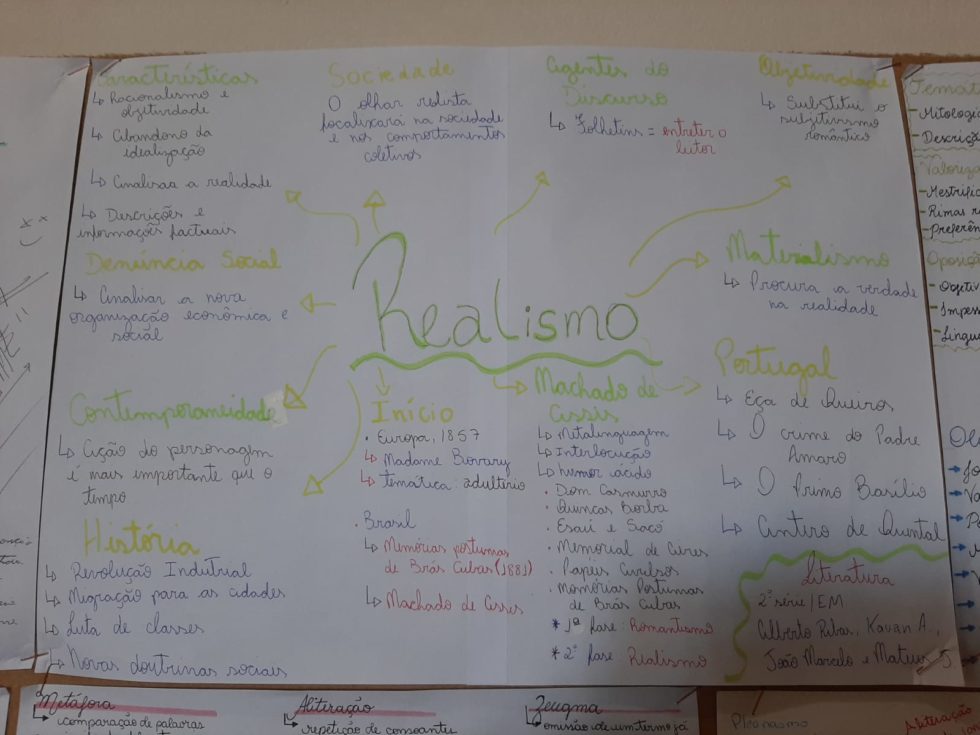 Características
↳ Racionalismo e
objetividade
↳ Abandono da
idealização
↳ Analisa a realidade
↳ Descrições e
informações factuais
Sociedade
O olhar realista
focalizará na sociedade
e nos comportamentos
coletivos
Agentes do
Discurso
↳ Folhetins = entreter o
leitor
Objetividade
↳ Substitui o
subjetivismo
romântico
Denúncia Social
↳ Analisar a nova
organização econômica e
social
Realismo
Materialismo
↳ Procura a verdade
na realidade
Contemporaneidade
↳ Ação do personagem
é mais importante que o
tempo
Início
• Europa, 1857
↳ Madame Bovary
↳ temática: adultério
• Brasil
↳ Memórias postumas
de Brás Cubas (1881)
↳ Machado de Assis
Machado de
Assis
↳ Metalinguagem
↳ Interlocução
↳ humor ácido
• Dom Casmurro
• Quincas Borba
• Esaú e Jacó
• Memorial de Aires
• Papeis Avulsos
• Memórias Postumas
de Brás Cubas
* 1ª fase: Romantismo
* 2ª fase: Realismo
Portugal
↳ Eça de Queiros
↳ O crime do Padre
Amaro
↳ O Primo Basílio
↳ Antero de Quental
História
↳ Revolução Indutrial
↳ Migração para as cidades
↳ Luta de classes
↳ Novas doutrinas sociais
Literatura
2ª série / EM
Gilberto Ribas, Kauan A.,
João Marcelo e Mateus S.
- Mitologia
- Descriçã
- Rimas
Metáfora
↳ comparação de palavras
Aliteração
↳ repetição de consoantes
Zeugma
↳ omissão de um termo já
Pleonasmo
Aliteração